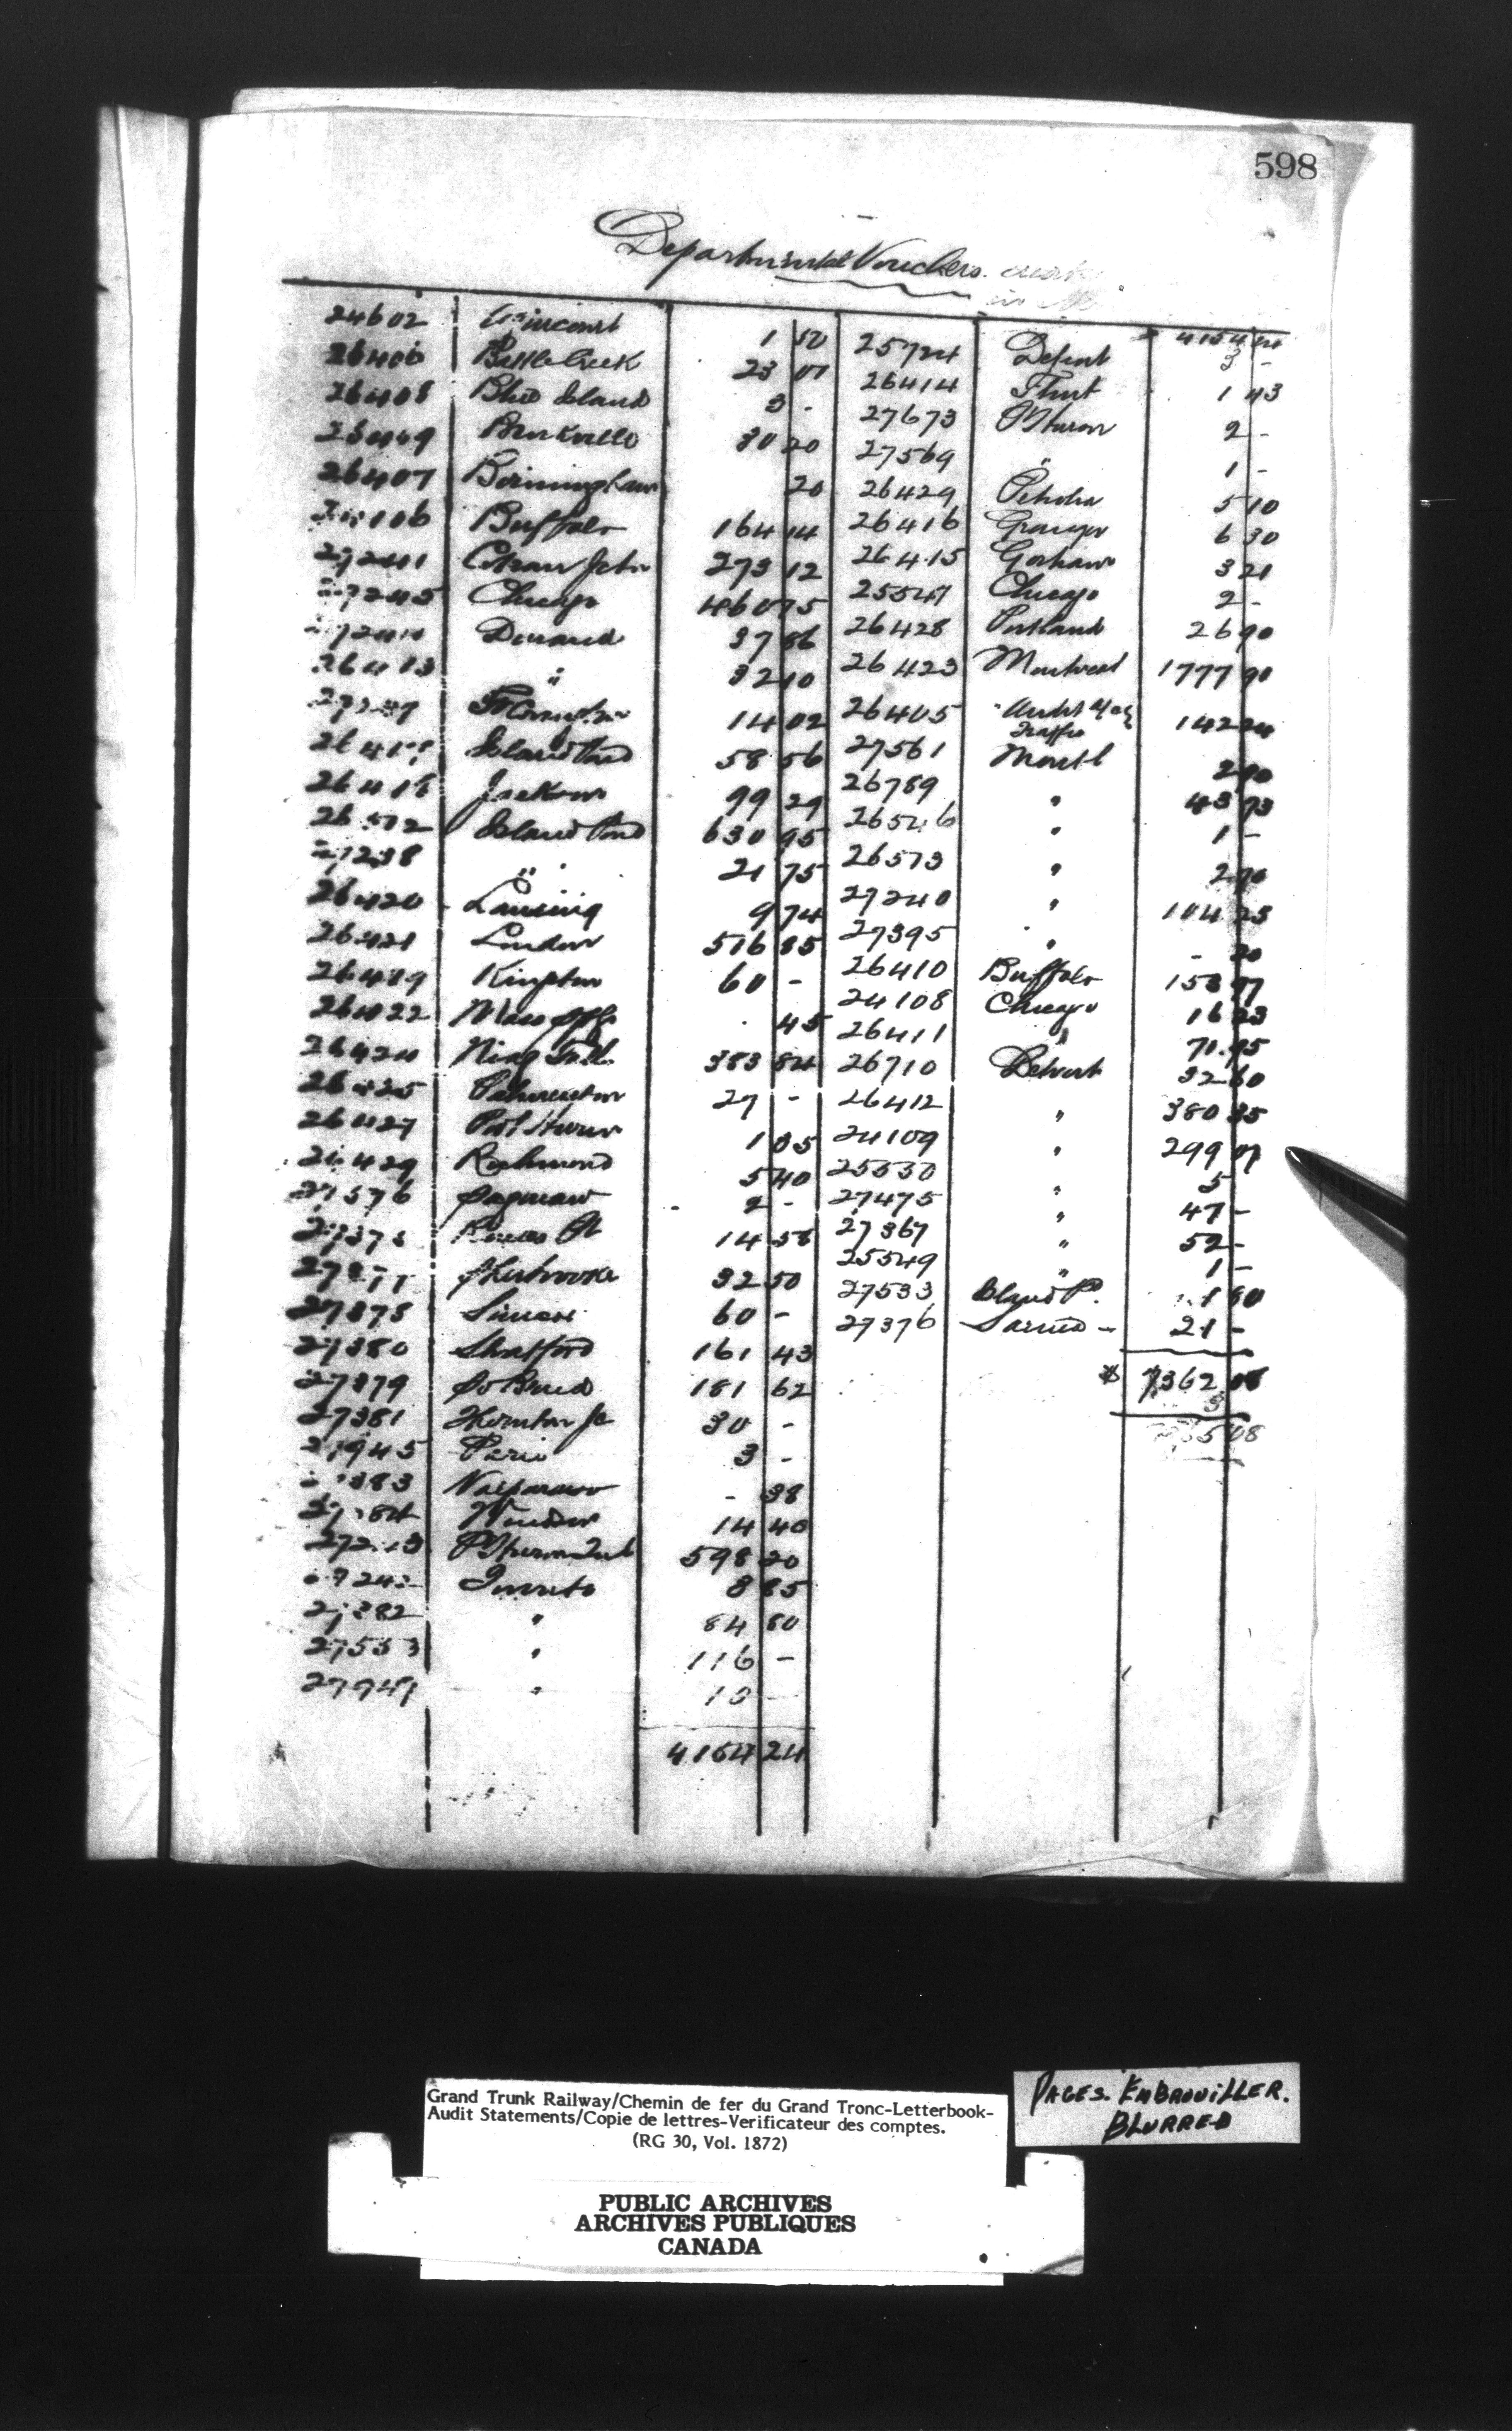 598
Departmental Vouchers
24602 1 50
26406 Battle Creek 23 07
26408 Blue Island 3 -
26409 Brockville 30 20
26407 Birmingham 20
106 Buffalo 164 14
27241 Jctn 273 12
27245 Chicago 460 75
Durand 37 86
26413 " 32 10
14 02
Island Pond 58 56
26418 Jackson 99 29
26572 Island Pond 630 95
27238 " 21 75
26420 Lansing 9 74
26421 London 516 85
26419 Kingston 60 -
26422 45
26424 Niag Falls 383 84
26425 Palmerston 27 -
26427 Port Huron 1 35
26429 Richmond 5 40
27376 Saginaw 2 -
Rouses Pt 14 58
27377 Sherbrooke 32 50
27378 Simcoe 60 -
27380 Stratford 161 43
27379 So Bend 181 62
27381 Thornton Jc 30 -
27945 Paris 3 -
383 Valparaiso - 38
27384 Windsor 14 40
598 20
Toronto 8 85
27382 " 84 80
27553 " 116 -
27947 " 13 -
4154 24
25724 Detroit 4154 24
3 -
26414 Flint 1 43
27673 P Huron 2 -
27569 " 1 -
26429 Petrolia 5 10
26416 Granger 6 30
26415 Gorham 3 21
25547 Chicago 2 -
26428 Portland 26 90
26423 Montreal 1777 90
26405 Audit
Traffic 142 24
27561 Montl 2 90
26789 " 43 73
26546 " 1 -
26573 " 2 70
27240 " 104 25
27395 " - 20
26410 Buffalo 153 77
24108 Chicago 16 23
26411 " 71.95
26710 Detroit 32 60
26412 " 380 35
24109 " 299 07
25530 " 5
27475 " 47 -
27367 " 52 -
25549 " 1 -
27533 Island Pd. 1 80
27376 Sarnia - 21 -
$ 7362 08
3
08
Grand Trunk Railway/Chemin de fer du Grand Tronc-Letterbook-
Audit Statements/Copie de lettres-Verificateur des comptes.
(RG 30, Vol. 1872)
PAGES. EMBROUILLER.
BLURRED
PUBLIC ARCHIVES
ARCHIVES PUBLIQUES
CANADA